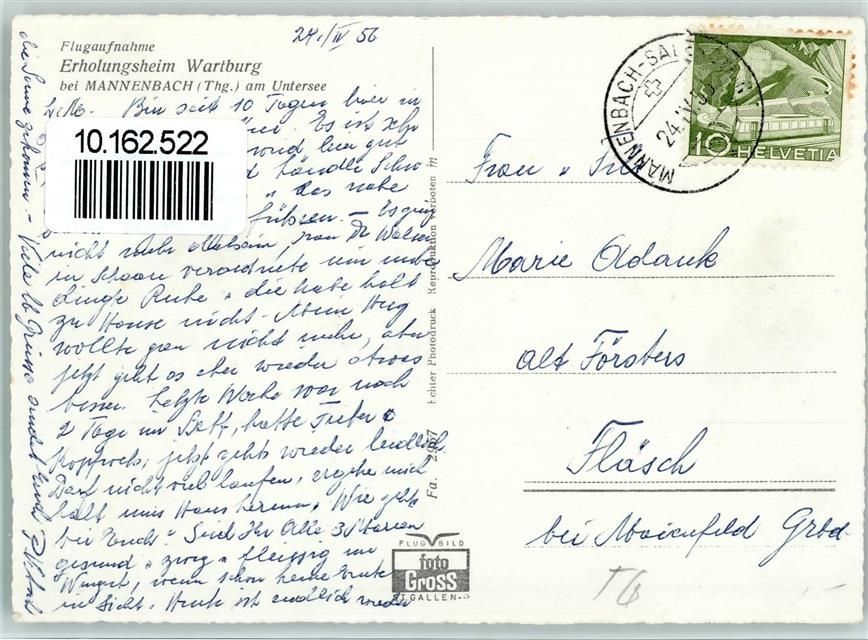 24./IV 56
Flugaufnahme
Erholungsheim Wartburg
bei MANNENBACH (Thg.) am Untersee
L. M. Bin seit 10 Tagen hier in
10.162.522
Es ist sehr
wird hier gut
das nahe
führen. — Es ging
nicht mehr allein, Frau Dr.
in verordnete mir unbe
dingte Ruhe, die habe halt
zu Hause nicht. Mein Herz
wollte gar nicht mehr, aber
jetzt geht es aber wieder etwas
besser. Letzte Woche war noch
2 Tage im Bett, hatte Fieber
Kopfweh, jetzt gehts wieder leidlich.
Darf nicht viel laufen, ergehe mich
halt ums Haus herum. Wie geht
bei Euch? Sind Ihr Alle 3 Marien
gesund u. zwäg u. fleissig im
Wingert, wenn schon keine Ernte
in Sicht. Heute ist endlich wieder
die Sonne gekommen. - Viele lb. Grüsse sendet Euch
Fa. 2957 Echter Photodruck Reproduktion verboten
FLUGBILD
foto
Gross
ST. GALLEN
MANNENBACH-SAL
24.IV.56
10
HELVETIA
Frau u.
Marie Adank
alt Försters
Fläsch
bei Maienfeld Grbd